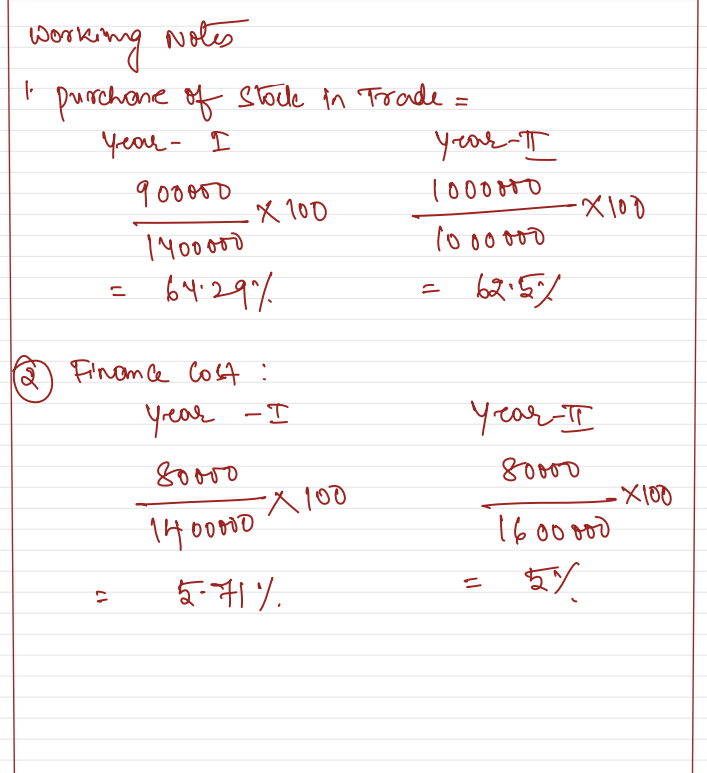 Working Notes
1. purchase of Stock in Trade =
Year - I Year - II
900000 / 1400000 × 100 1000000 / 1000000 × 100
= 64.29% = 62.5%
② Finance Cost :
Year - I Year - II
80000 / 1400000 × 100 80000 / 1600000 × 100
= 5.71% = 5%